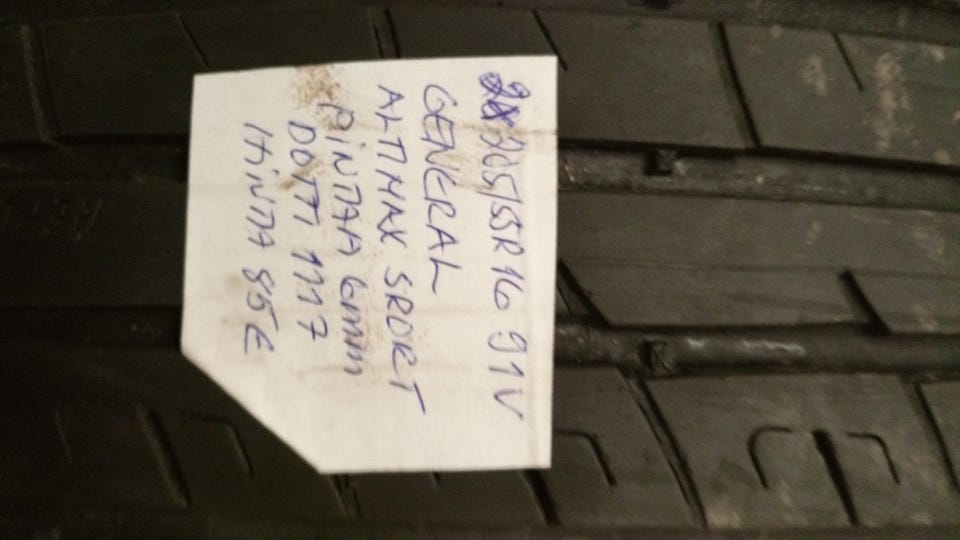 205/55R16 91V
GENERAL
ALTIMAX SPORT
PiNTAA 6mm
DOTTI 1117
HiNTA 85€